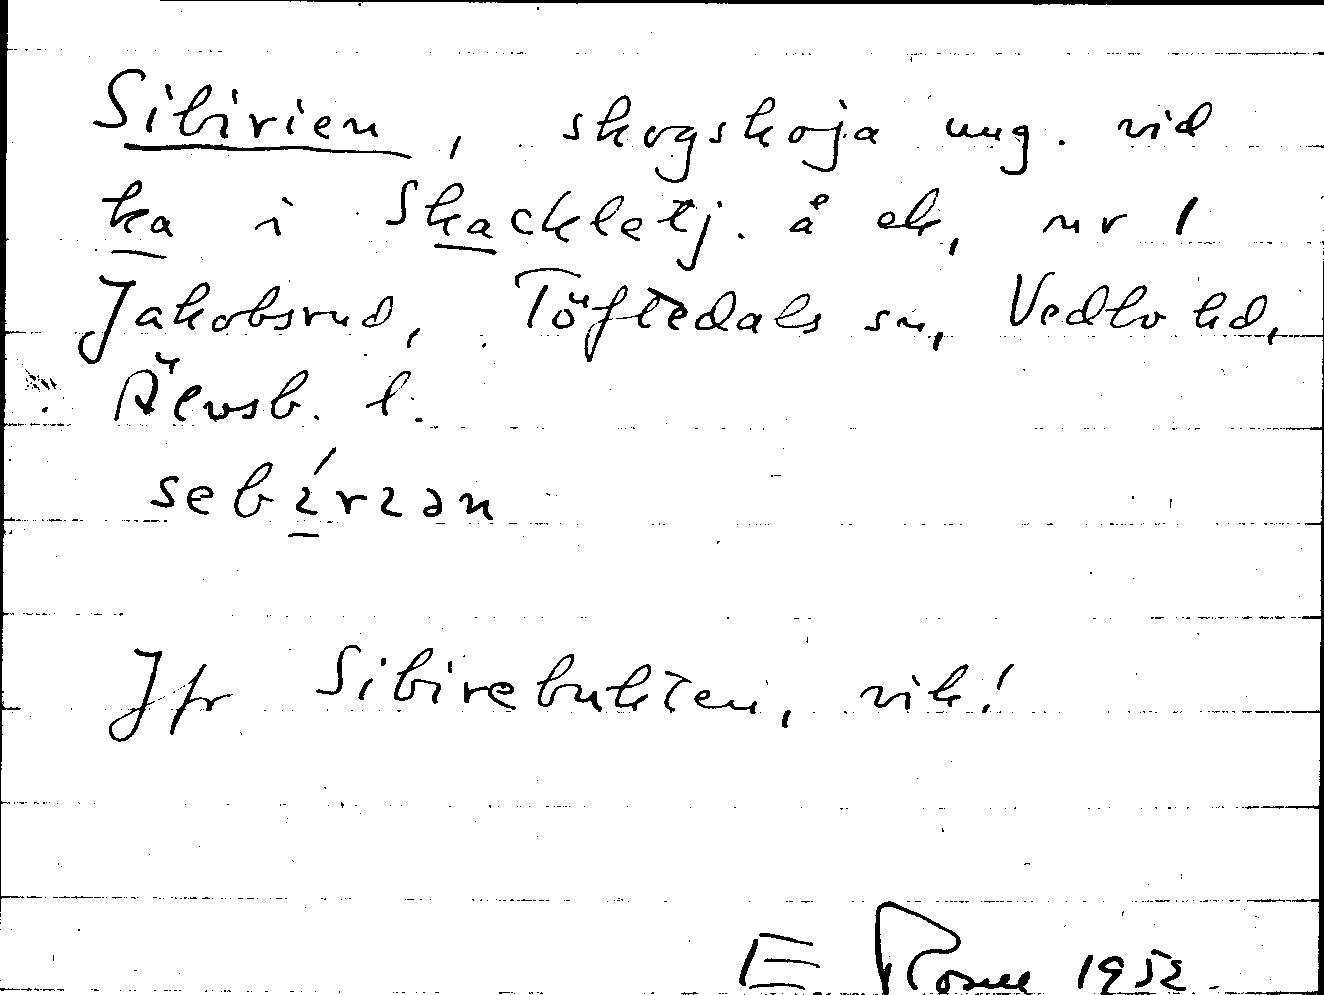 Sibirien, skogskoja ung. vid
ka i Skackletj. å ek, nr 1
Jakobsrud, Töftedals sn, Vedbo hd,
Älvsb. l.
sebírɩən
Jfr Sibirebukten, vik!
E. 1952